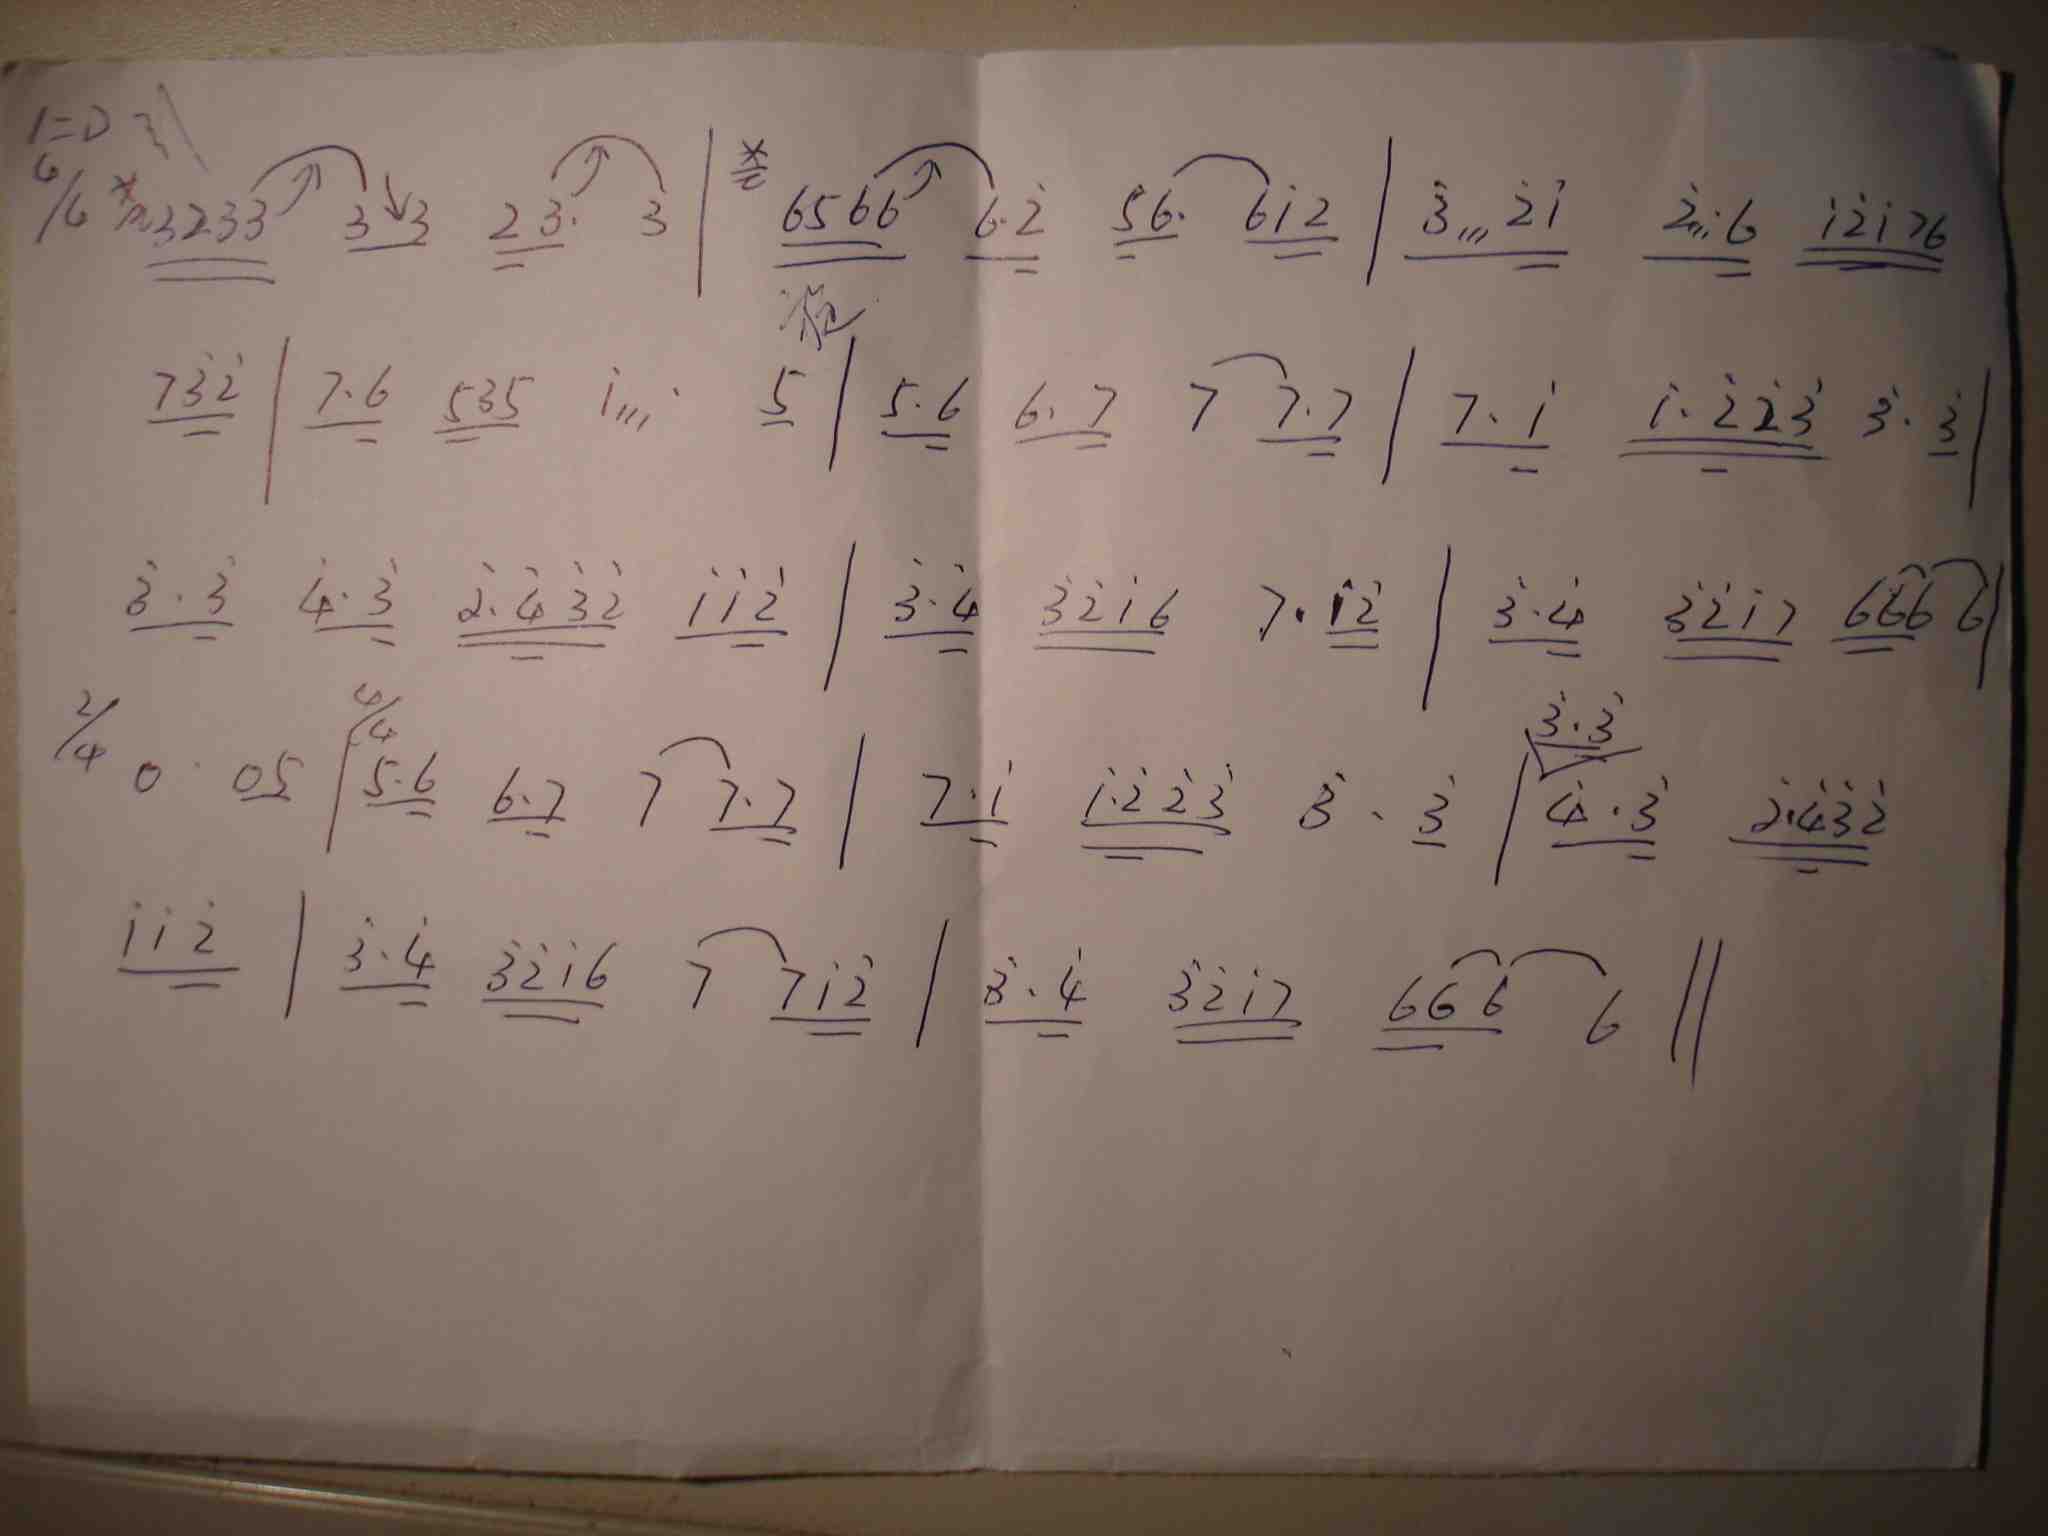 1=D
3233 3 3 23. 3 | 6566 6.2̇ 56. 61̇2̇ | 3̇,,, 2̇1̇ 2̇,,,6 1̇2̇1̇76
73̇2̇ | 7.6 535 1̇,,,. 5 | 5.6 6.7 7 7.7 | 7.1̇ 1̇.2̇2̇3̇ 3̇.3̇ |
3̇.3̇ 4̇.3̇ 2̇.4̇3̇2̇ 1̇1̇2̇ | 3̇.4̇ 3̇2̇1̇6 7.1̇2̇ | 3̇.4̇ 3̇2̇1̇7 666 6 |
2/4 0 05 | 4/4 5.6 6.7 7 7.7 | 7.1̇ 1̇.2̇2̇3̇ 3̇.3̇ | 3̇.3̇ 4̇.3̇ 2̇.4̇3̇2̇
1̇1̇2̇ | 3̇.4̇ 3̇2̇1̇6 7 71̇2̇ | 3̇.4̇ 3̇2̇1̇7 666 6 ||